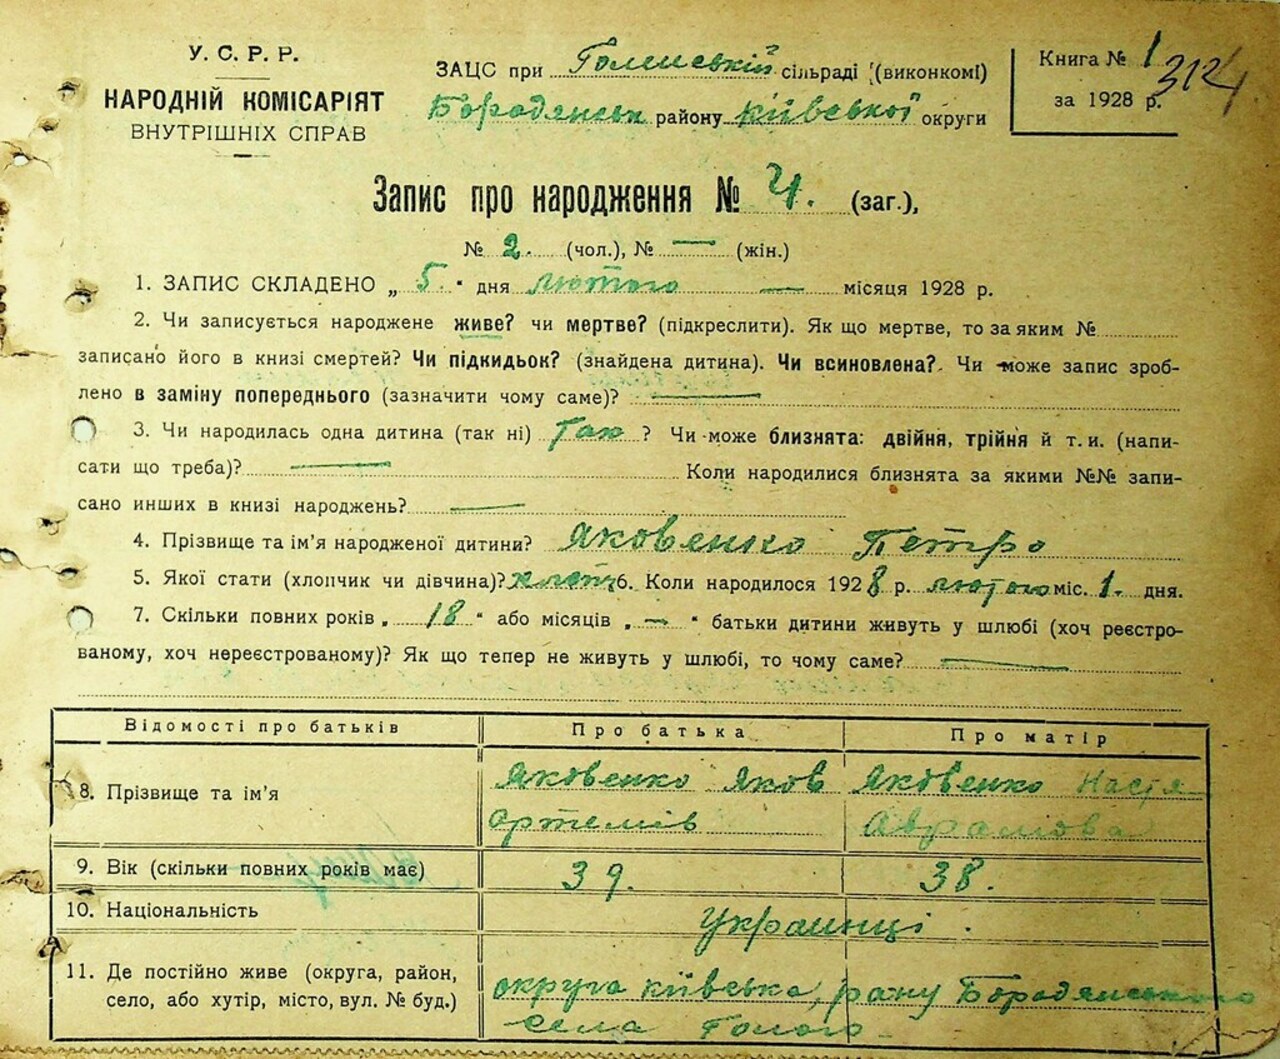 У. С. Р. Р.
НАРОДНІЙ КОМІСАРІЯТ
ВНУТРІШНІХ СПРАВ
ЗАЦС при сільраді (виконкомі)
Бородянськ району київської округи
Книга № 1
3124
за 1928 р.
Запис про народження № 4. (заг.),
№ 2. (чол.), № — (жін.)
1. ЗАПИС СКЛАДЕНО „ 5 " дня лютого — місяця 1928 р.
2. Чи записується народжене живе? чи мертве? (підкреслити). Як що мертве, то за яким №
записано його в книзі смертей? Чи підкидьок? (знайдена дитина). Чи всиновлена? Чи може запис зроб-
лено в заміну попереднього (зазначити чому саме)? —
3. Чи народилась одна дитина (так ні) Так ? Чи може близнята: двійня, трійня й т. и. (напи-
сати що треба)? — Коли народилися близнята за якими №№ запи-
сано инших в книзі народжень? —
4. Прізвище та ім'я народженої дитини? Яковенко Петро
5. Якої стати (хлопчик чи дівчина)? хлопц 6. Коли народилося 1928 р. лютого міс. 1. дня.
7. Скільки повних років „ 18 " або місяців „ — " батьки дитини живуть у шлюбі (хоч реєстро-
ваному, хоч нереєстрованому)? Як що тепер не живуть у шлюбі, то чому саме? —
Відомості про батьків Про батька Про матір
8. Прізвище та ім'я Яковенко Яков Яковенко Настя
Артемів Аврамова
9. Вік (скільки повних років має) 39. 38.
10. Національність Украинці.
11. Де постійно живе (округа, район,
село, або хутір, місто, вул. № буд.)
округа київська, рану Бородянського
села